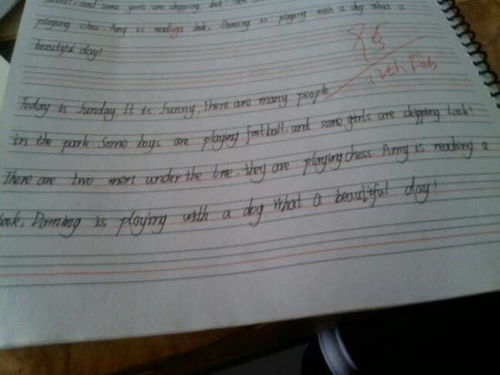 and some girls are skipping
playing chess. Amy is reading a book. Daming is playing with a dog what a
beautiful day!
Today is Sunday. It is Sunny. There are many people
in the park Some boys are playing football. and some girls are skipping Look!
There are two men under the tree. They are playing chess. Amy is reading a
book. Daming is playing with a dog. What a beautiful day!